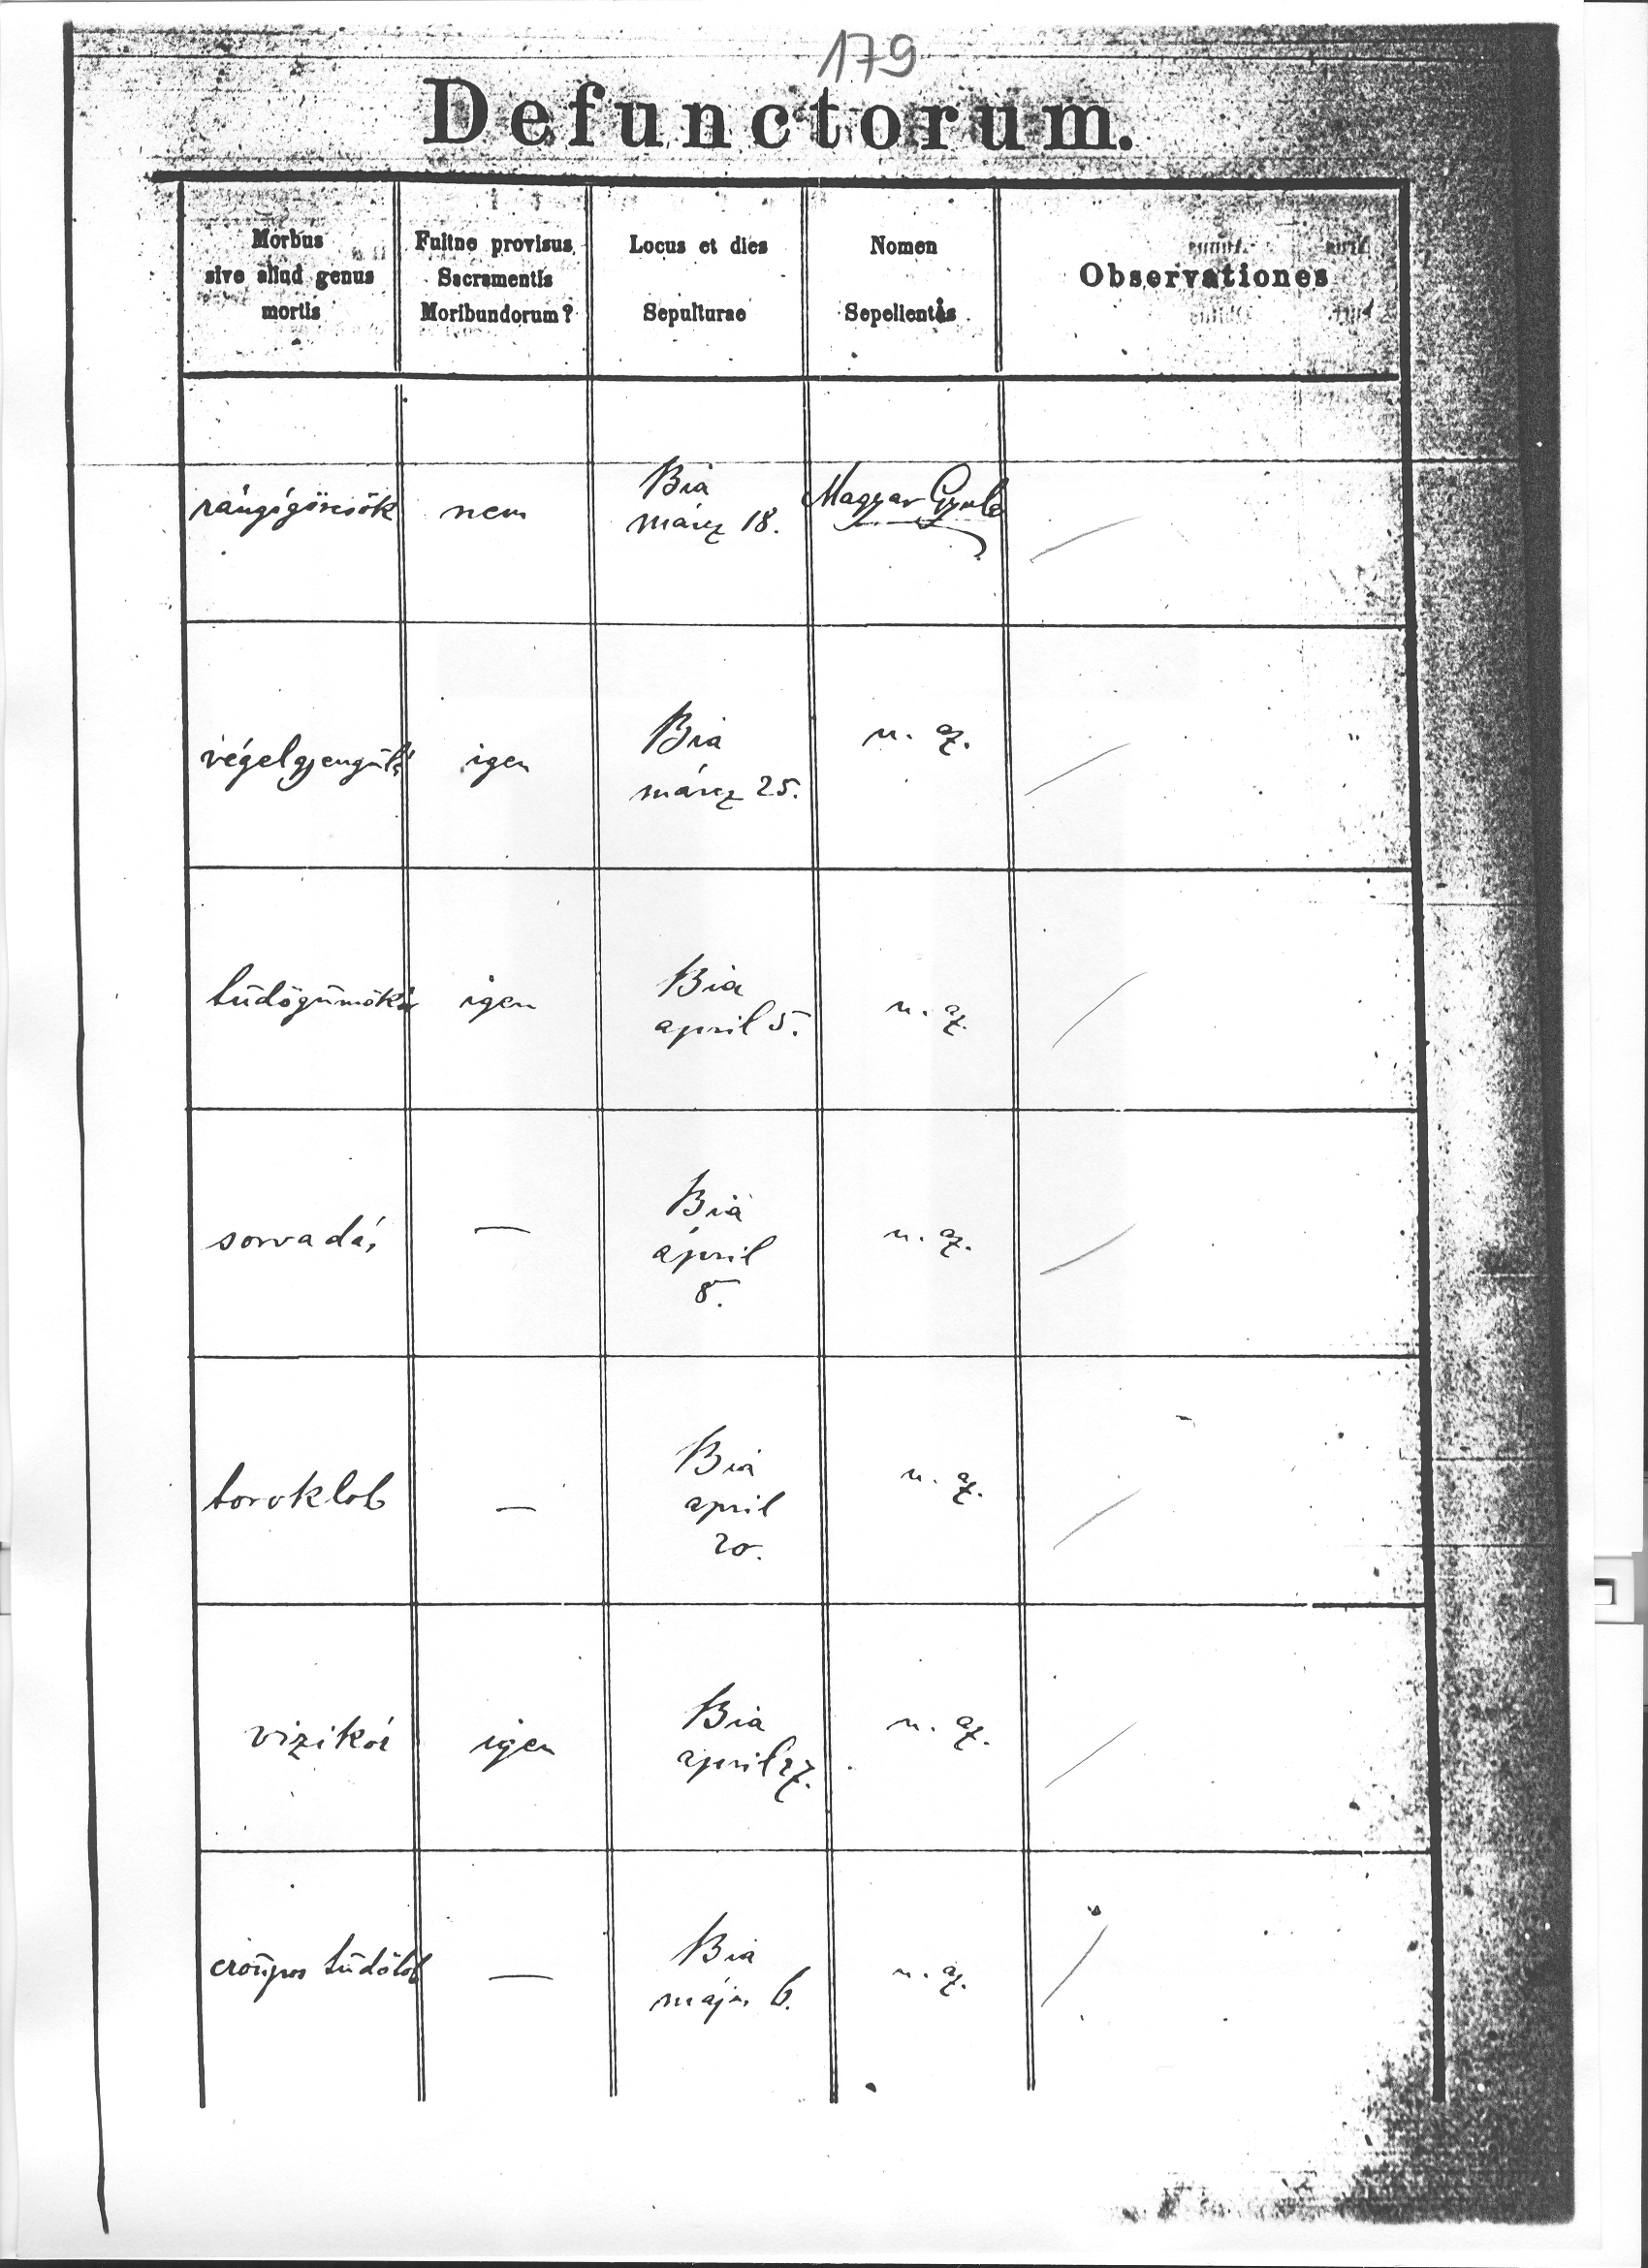 179
Defunctorum.
Morbus
sive aliud genus
mortis
Fuitne provisus
Sacramentis
Moribundorum?
Locus et dies
Sepulturae
Nomen
Sepelientis
Observationes
rángógörcsök
nem
Bia
márcz 18.
Magyar Gyula
végelgyengülés
igen
Bia
márcz 25.
u. az.
tüdőgümőkór
igen
Bia
april 5.
u. az.
sorvadás
—
Bia
ápril
8.
u. az.
toroklob
—
Bia
april
20.
u. az.
vizikór
igen
Bia
april 27.
u. az.
croupos tüdőlob
—
Bia
május 6.
u. az.